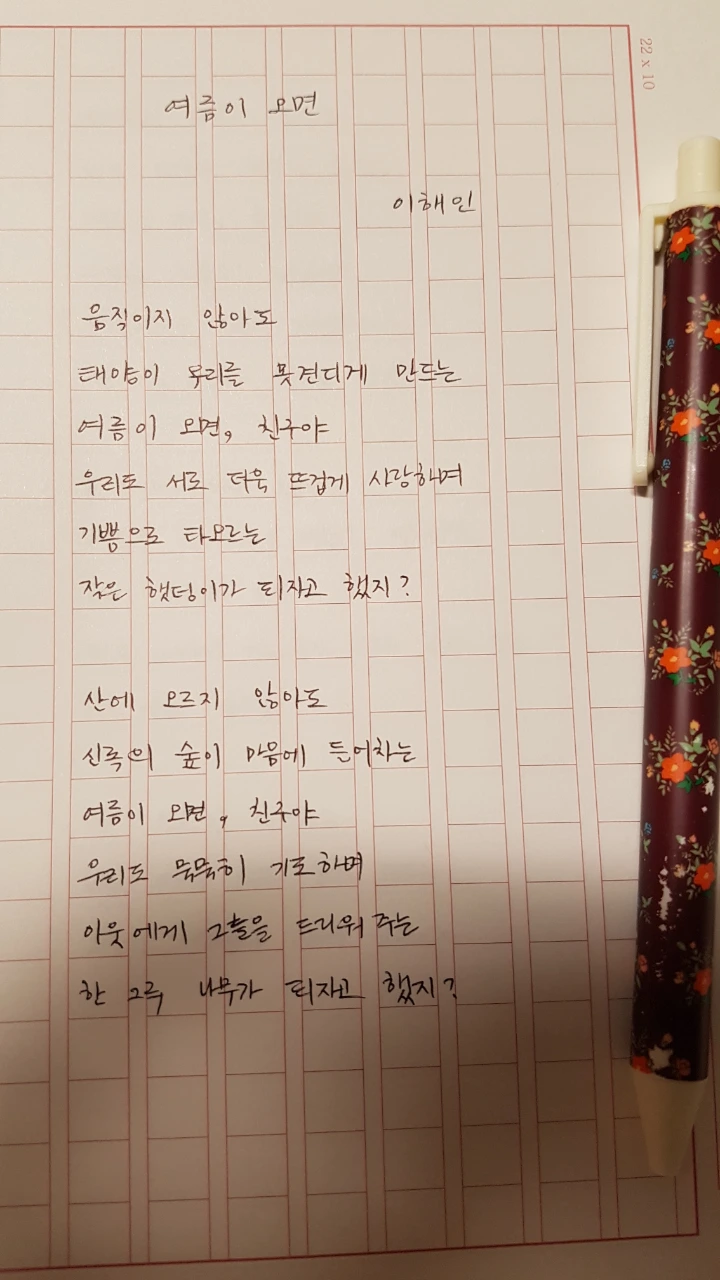 22 x 10
여름이 오면
이해인
움직이지 않아도
태양이 우리를 못견디게 만드는
여름이 오면, 친구야
우리도 서로 더욱 뜨겁게 사랑하며
기쁨으로 타오르는
작은 햇덩이가 되자고 했지?
산에 오르지 않아도
신록의 숲이 마음에 들어차는
여름이 오면, 친구야
우리도 묵묵히 기도하며
이웃에게 그늘을 드리워 주는
한 그루 나무가 되자고 했지?